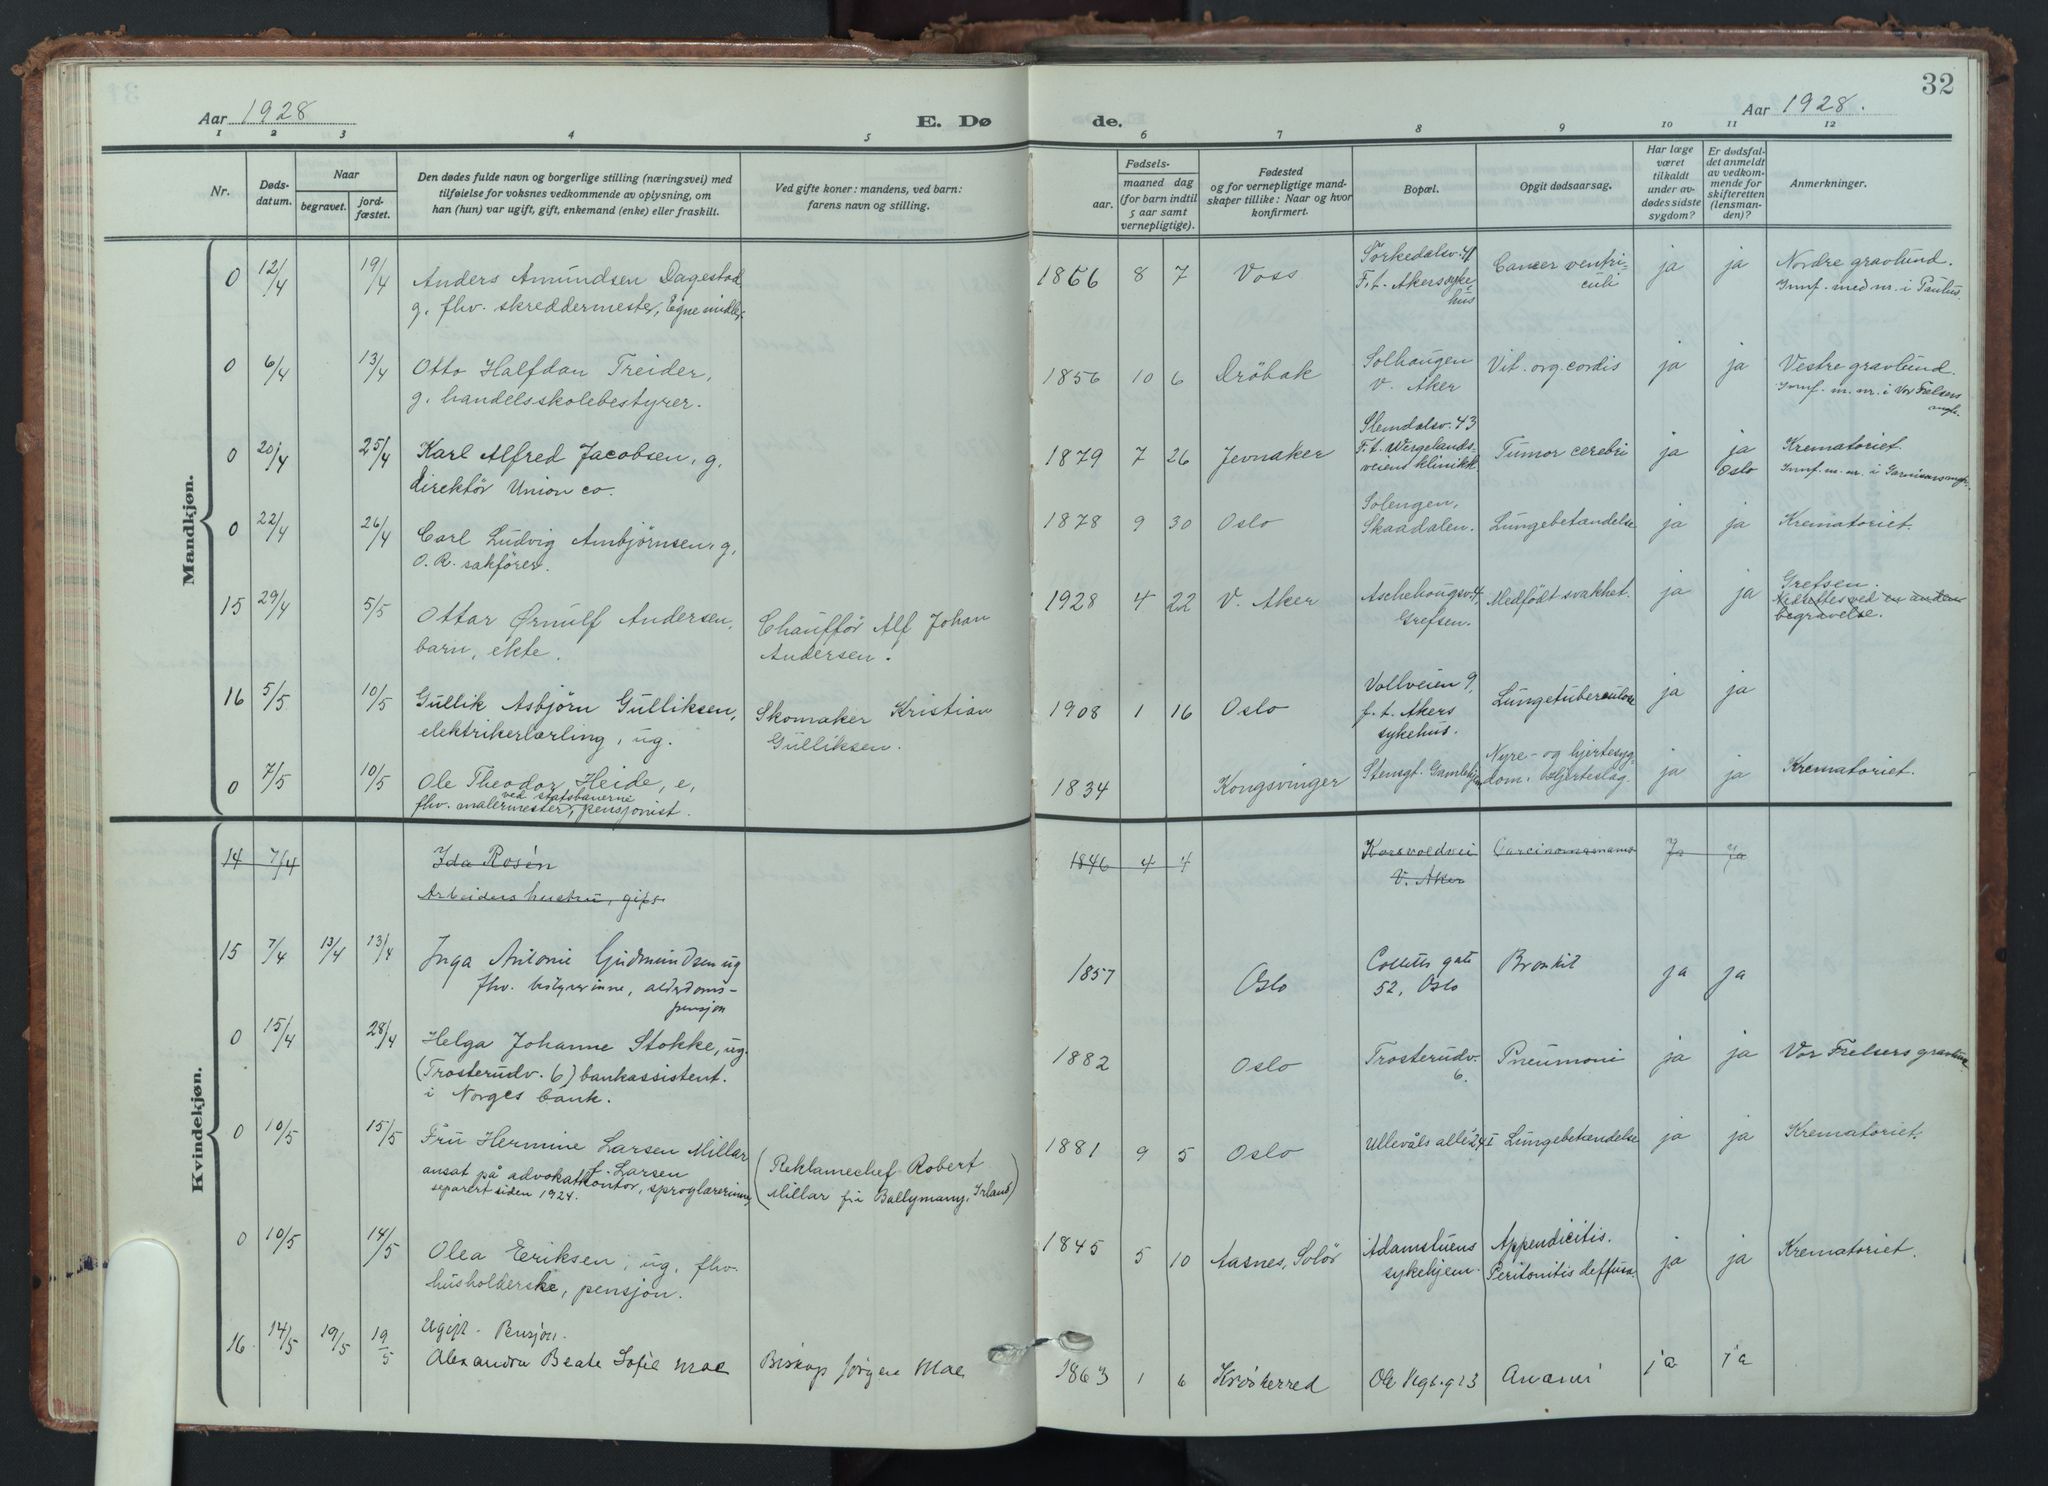 32
Aar 1928
E. Dø
de.
Aar 1928.
1 2 3 4 5 6 7 8 9 10 11 12
Nr.
Døds-
datum.
Naar
begravet.
jord-
fæstet.
Den dødes fulde navn og borgerlige stilling (næringsvei) med
tilføielse for voksnes vedkommende av oplysning, om
han (hun) var ugift, gift, enkemand (enke) eller fraskilt.
Ved gifte koner: mandens, ved barn:
farens navn og stilling.
Fødsels-
aar.
maaned dag
(for barn indtil
5 aar samt
vernepligtige).
Fødested
og for vernepligtige mand-
skaper tillike: Naar og hvor
konfirmert.
Bopæl.
Opgit dødsaarsag.
Har læge
været
tilkaldt
under av-
dødes sidste
sygdom?
Er dødsfal-
det anmeldt
av vedkom-
mende for
skifteretten
(lensman-
den)?
Anmerkninger.
Mandkjøn.
0 12/4 19/4 Anders Amundsen Dagestad
g. fhv. skreddermester, Egne midler
1866 8 7 Voss
Sørkedalsv. 41
F. t. Akers syke-
hus
Cancer ventri-
culi
ja ja Nordre gravlund.
Innf. med nr. i Paulus
0 6/4 13/4 Otto Halfdan Treider,
g. handelsskolebestyrer.
1856 10 6 Drøbak
Solhaugen
V. Aker
Vit. org. cordis ja ja Vestre gravlund.
Innf. m. nr. i Vor Frelsers
mgh.
0 20/4 25/4 Karl Alfred Jacobsen, g.
direktør Union co.
1879 7 26 Jevnaker
Slemdalsv. 43
F. t. Wergelands-
veiens klinikk
Tumor cerebri ja ja
Oslo
Krematoriet.
Innf. m. nr. i Garnisonsmgh.
0 22/4 26/4 Carl Ludvig Ambjørnsen, g.
O. R. sakfører.
1878 9 30 Oslo
Solengen,
Skaadalen.
Lungebetændelse ja ja Krematoriet.
15 29/4 5/5 Ottar Ørnulf Andersen,
barn, ekte.
Chauffør Alf Johan
Andersen.
1928 4 22 V. Aker
Aschehougsv. 4,
Grefsen.
Medfødt svakhet. ja ja
Grefsen.
Nedsettes ved en anden
begravelse.
16 5/5 10/5 Gullik Asbjørn Gulliksen,
elektrikerlærling, ug.
Skomaker Kristian
Gulliksen.
1908 1 16 Oslo
Vollveien 9,
f. t. Akers
sykehus.
Lungetuberculose ja ja
0 7/5 10/5 Ole Theodor Heide, e,
ved statsbanerne
fhv. malermester, pensjonist.
1834 Kongsvinger
Stensgt. Gamlehjem
Nyre- og hjertesyg-
dom. Hjerteslag
ja ja Krematoriet.
Kvindekjøn.
14 7/4 Ida Rosén
Arbeiders hustru, gift
1846 4 4
Korsvoldvei
V. Aker
Ja Ja
15 7/4 13/4 13/4 Inga Antonie Gudmundsen ug
fhv. bestyrerinne, alderdoms-
pensjon
1857 Oslo
Colletts gate
52, Oslo
Bronkit ja ja
0 15/4 28/4 Helga Johanne Stokke, ug.
(Trosterudv. 6) bankassistent.
i Norges bank.
1882 Oslo
Trosterudv.
6.
Pneumoni ja ja Vor Frelsers gravlund
0 10/5 15/5 Fru Hermine Larsen Millar
f. Larsen
ansat på advokatkontor, sproglærerinne,
separert siden 1924.
(Reklamechef Robert
Millar fra Ballymany, Irland)
1881 9 5 Oslo
Ullevåls allé 24 I Lungebetændelse ja ja Krematoriet.
0 10/5 14/5 Olea Eriksen, ug. fhv.
husholderske, pensjon.
1845 5 10 Aasnes, Solør
Adamstuens
sykehjem.
Appendicitis.
Peritonitis deffusa.
ja ja Krematoriet.
16 14/5 19/5 19/5 Ugift. Pensjon.
Alexandra Beate Sofie Moe
Biskop Jørgen Moe
1863 1 6 Krødsherred
Anæmi ja ja